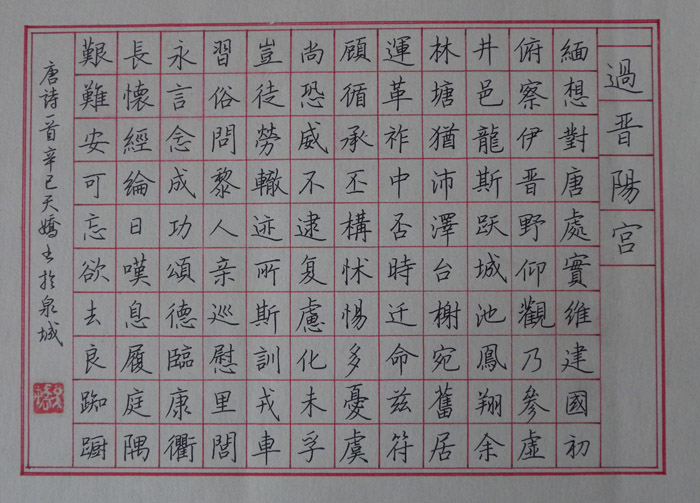 過晋陽宫
緬想對唐處實維建國初
俯察伊晋野仰觀乃參虛
井邑龍斯跃城池鳳翔余
林塘猶沛澤台榭宛舊居
運革祚中否時迁命兹符
顧循承丕構怵惕多憂虞
尚恐威不逮复慮化未孚
豈徒勞轍迹所斯訓戎車
習俗問黎人亲巡慰里閭
永言念成功頌德臨康衢
長懷經綸日嘆息履庭隅
艱難安可忘欲去良踟蹰
唐詩一首辛巳天嬌书於泉城